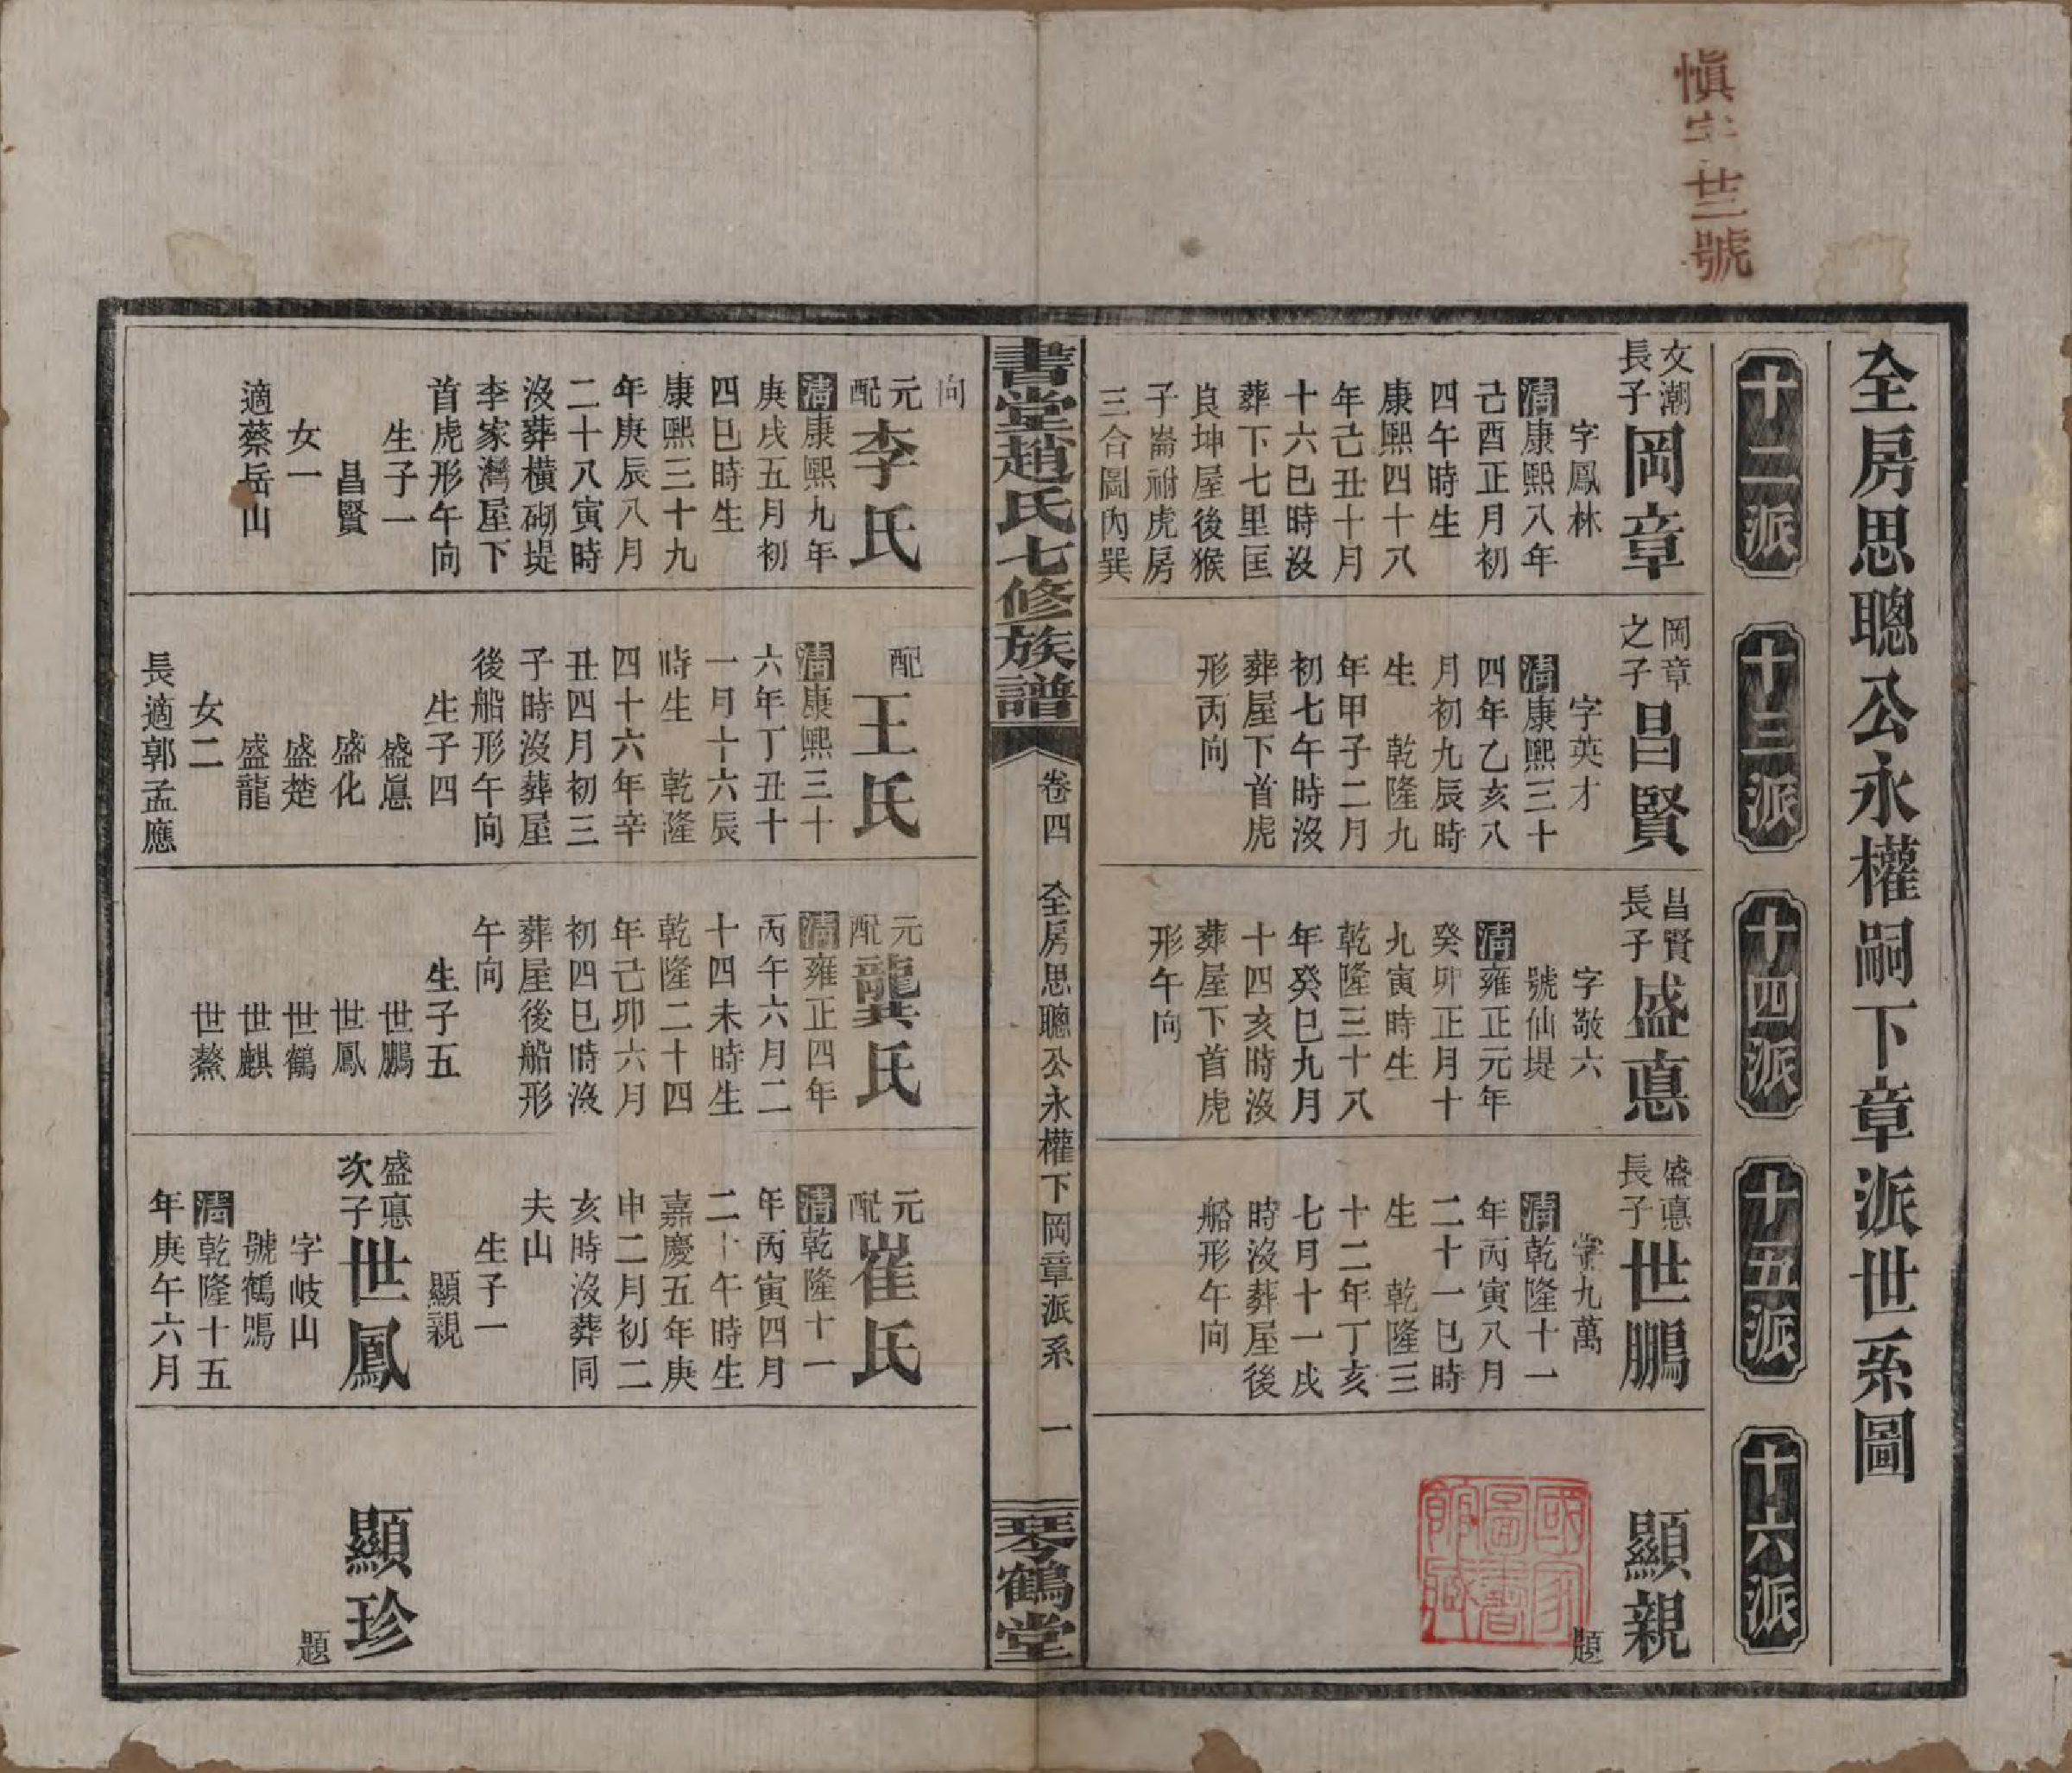 愼字廿三號
全房思聰公永權嗣下章派世系圖
十二派
十三派
十四派
十五派
十六派
文潮
長子
岡章
字鳳林
清康熙八年
己酉正月初
四午時生
康熙四十八
年己丑十月
十六巳時沒
葬下七里匡
良坤屋後猴
子崙祔虎房
三合圖內巽
岡章
之子
昌賢
字英才
清康熙三十
四年乙亥八
月初九辰時
生 乾隆九
年甲子二月
初七午時沒
葬屋下首虎
形丙向
昌賢
長子
盛悳
字敬六
號仙堤
清雍正元年
癸卯正月十
九寅時生
乾隆三十八
年癸巳九月
十四亥時沒
葬屋下首虎
形午向
盛悳
長子
世鵬
字九萬
清乾隆十一
年丙寅八月
二十一巳時
生 乾隆三
十二年丁亥
七月十一戌
時沒葬屋後
船形午向
顯親
題
國家圖書館藏
書堂趙氏七修族譜
卷四
全房思聰公永權下岡章派系
一
琴鶴堂
向
元配
李氏
清康熙九年
庚戌五月初
四巳時生
康熙三十九
年庚辰八月
二十八寅時
沒葬橫砌堤
李家灣屋下
首虎形午向
生子一
昌賢
女一
適蔡岳山
配
王氏
清康熙三十
六年丁丑十
一月十六辰
時生 乾隆
四十六年辛
丑四月初三
子時沒葬屋
後船形午向
生子四
盛悳
盛化
盛楚
盛龍
女二
長適郭孟應
元配
龔氏
清雍正四年
丙午六月二
十四未時生
乾隆二十四
年己卯六月
初四巳時沒
葬屋後船形
午向
生子五
世鵬
世鳳
世鶴
世麒
世鰲
元配
崔氏
清乾隆十一
年丙寅四月
二十午時生
嘉慶五年庚
申二月初二
亥時沒葬同
夫山
生子一
顯親
盛悳
次子
世鳳
字岐山
號鶴鳴
清乾隆十五
年庚午六月
顯珍
題